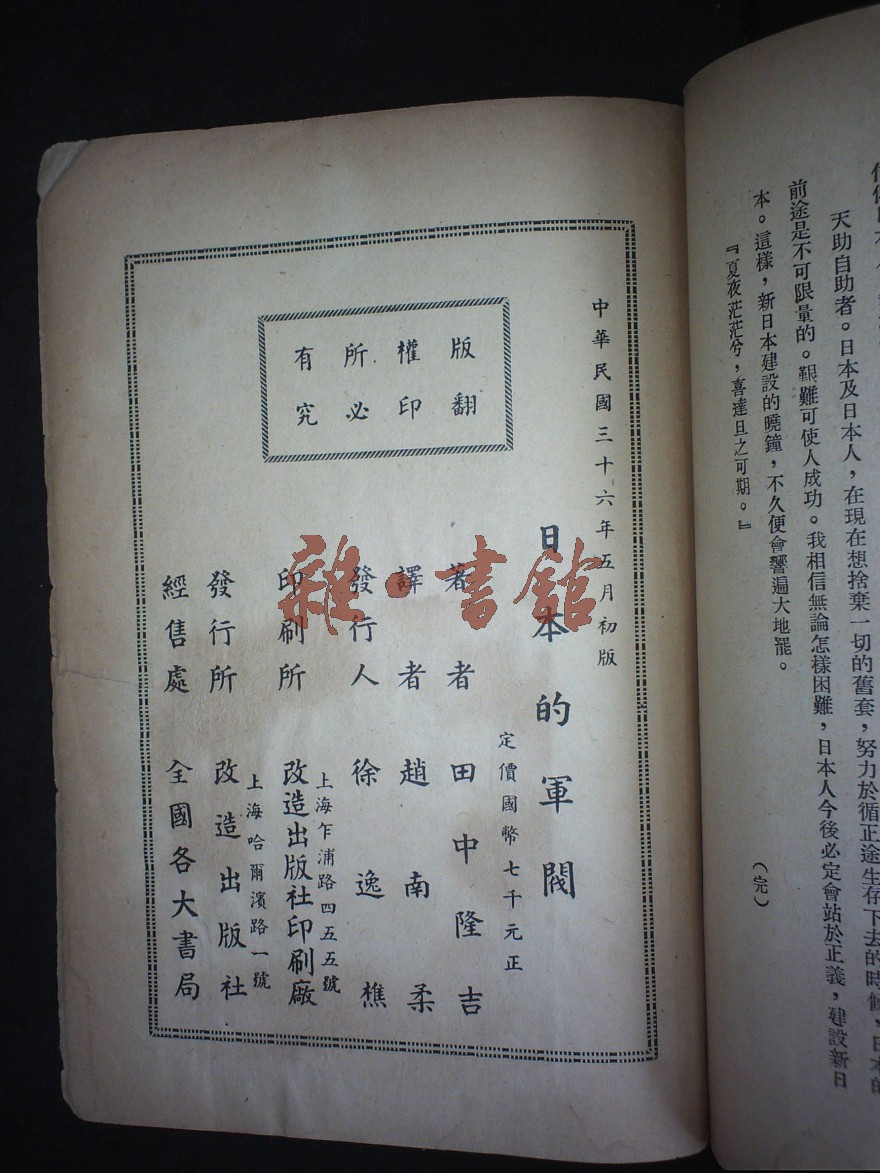 天助自助者。日本及日本人，在現在想捨棄一切的舊套，努力於循正途生存下去的時候，日本的
前途是不可限量的。艱難可使人成功。我相信無論怎樣困難，日本人今後必定會站於正義，建設新日
本。這樣，新日本建設的曉鐘，不久便會響遍大地罷。
『夏夜茫茫兮，喜達旦之可期。』
（完）
中華民國三十六年五月初版
版權所有
翻印必究
日本的軍閥
定價國幣七千元正
著者 田中隆吉
譯者 趙南柔
發行人 徐逸樵
上海乍浦路四五五號
印刷所 改造出版社印刷廠
上海哈爾濱路一號
發行所 改造出版社
經售處 全國各大書局
雜·書館